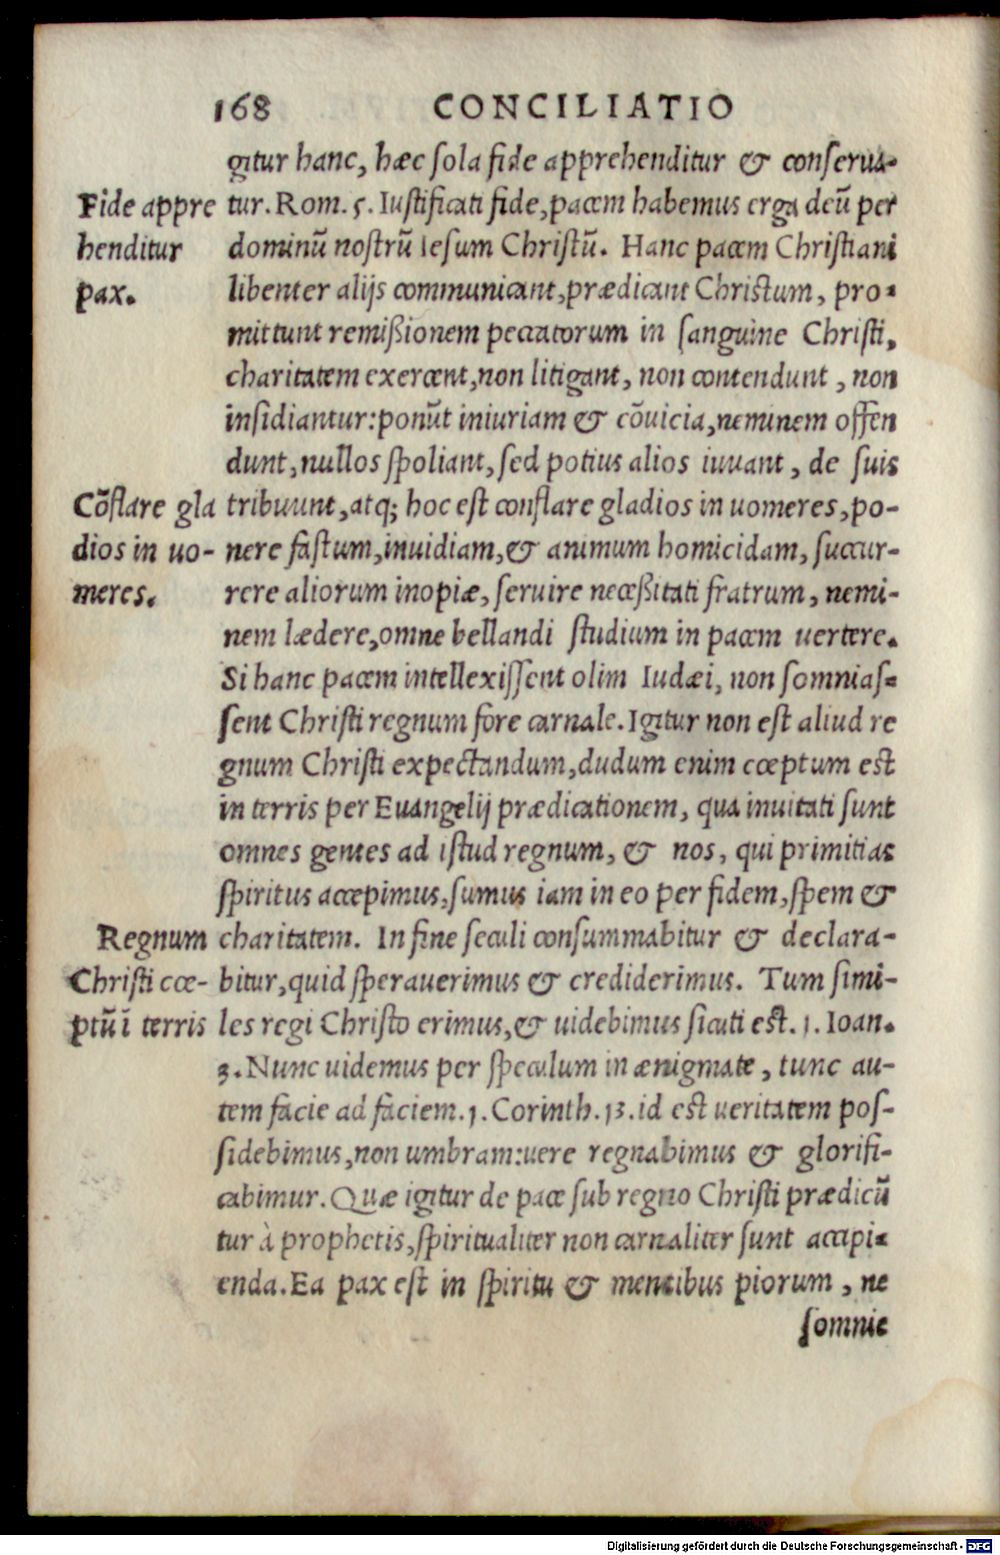 168 CONCILIATIO
gitur hanc, hæc ſola fide apprehenditur & conſerua-
tur. Rom. 5. Iuſtificati fide, pacem habemus erga deũ per
dominũ noſtrũ Ieſum Chriſtũ. Hanc pacem Chriſtiani
libenter alijs communicant, prædicant Chriſtum, pro-
mittunt remiſsionem peccatorum in ſanguine Chriſti,
charitatem exercent, non litigant, non contendunt, non
inſidiantur: ponũt iniuriam & cõuicia, neminem offen
dunt, nullos ſpoliant, ſed potius alios iuuant, de ſuis
tribuunt, atq; hoc eſt conflare gladios in uomeres, po-
nere faſtum, inuidiam, & animum homicidam, ſuccur-
rere aliorum inopiæ, ſeruire neceſsitati fratrum, nemi-
nem lædere, omne bellandi ſtudium in pacem uertere.
Si hanc pacem intellexiſſent olim Iudæi, non ſomniaſ-
ſent Chriſti regnum fore carnale. Igitur non eſt aliud re
gnum Chriſti expectandum, dudum enim cœptum eſt
in terris per Euangelij prædicationem, qua inuitati ſunt
omnes gentes ad iſtud regnum, & nos, qui primitias
ſpiritus accepimus, ſumus iam in eo per fidem, ſpem &
charitatem. In fine ſeculi conſummabitur & declara-
bitur, quid ſperauerimus & crediderimus. Tum ſimi-
les regi Chriſto erimus, & uidebimus ſicuti eſt. 1. Ioan.
3. Nunc uidemus per ſpeculum in ænigmate, tunc au-
tem facie ad faciem. 1. Corinth. 13. id eſt ueritatem poſ-
ſidebimus, non umbram: uere regnabimus & glorifi-
cabimur. Quæ igitur de pace ſub regno Chriſti prædicũ
tur à prophetis, ſpiritualiter non carnaliter ſunt accipi-
enda. Ea pax eſt in ſpiritu & mentibus piorum, ne
ſomnie
Fide appre
henditur
pax.
Cõflare gla
dios in uo-
meres.
Regnum
Chriſti cœ-
ptũ ĩ terris
Digitalisierung gefördert durch die Deutsche Forschungsgemeinschaft - DFG